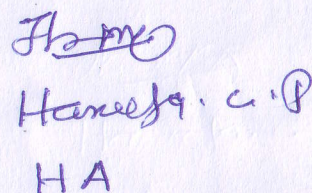 Haneefa. C.P
HA